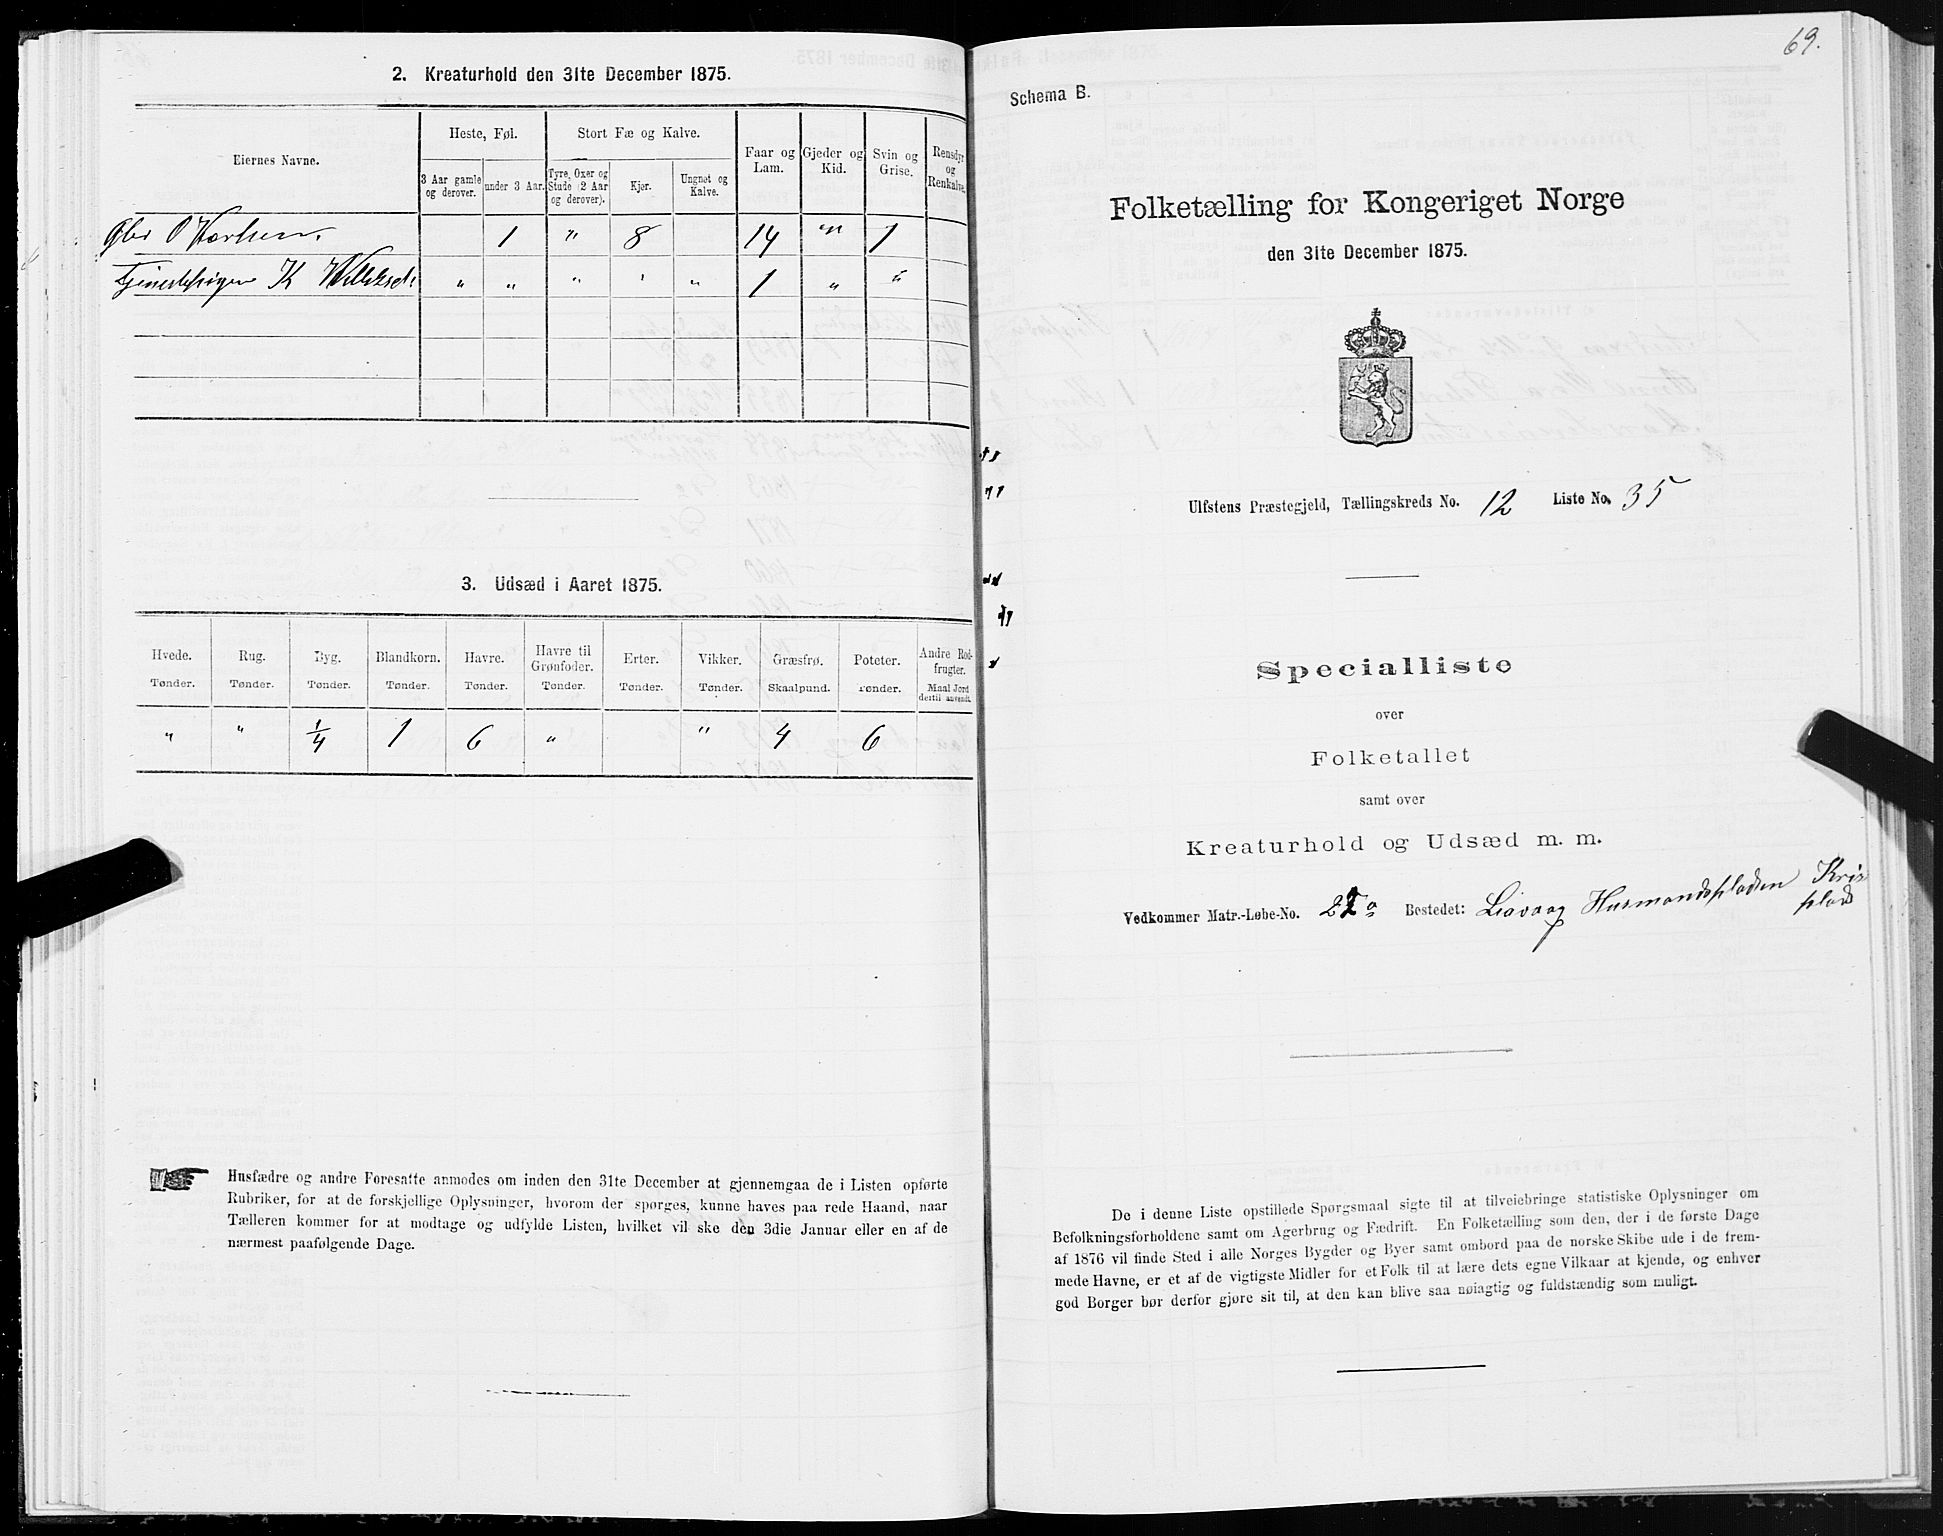 2. Kreaturhold den 31te December 1875.
Eiernes Navne.
Heste, Føl.
Stort Fæ og Kalve.
Faar og Lam.
Gjeder og Kid.
Svin og Grise.
Rensdyr og Renkalve.
3 Aar gamle og derover.
under 3 Aar.
Tyre, Oxer og Stude (2 Aar og derover).
Kjør.
Ungnøt og Kalve.
O 1 " 8 14 " 1
K " " " " " 1 " "
3. Udsæd i Aaret 1875.
Hvede. Rug. Byg. Blandkorn. Havre. Havre til Grønfoder. Erter. Vikker. Græsfrø. Poteter. Andre Rodfrugter.
Tønder. Tønder. Tønder. Tønder. Tønder. Tønder. Tønder. Tønder. Skaalpund. Tønder. Maal Jord dertil anvendt.
" " 1/4 1 6 " " 4 6
Husfædre og andre Foresatte anmodes om inden den 31te December at gjennemgaa de i Listen opførte
Rubriker, for at de forskjellige Oplysninger, hvorom der spørges, kunne haves paa rede Haand, naar
Tælleren kommer for at modtage og udfylde Listen, hvilket vil ske den 3die Januar eller en af de
nærmest paafølgende Dage.
69.
Schema B.
Folketælling for Kongeriget Norge
den 31te December 1875.
Ulfstens Præstegjeld, Tællingskreds No. 12 Liste No. 35
Specialliste
over
Folketallet
samt over
Kreaturhold og Udsæd m. m.
Vedkommer Matr.-Løbe-No. Bestedet: Liavaag Husmandspladsen
plads
De i denne Liste opstillede Spørgsmaal sigte til at tilveiebringe statistiske Oplysninger om
Befolkningsforholdene samt om Agerbrug og Fædrift. En Folketælling som den, der i de første Dage
af 1876 vil finde Sted i alle Norges Bygder og Byer samt ombord paa de norske Skibe ude i de frem-
mede Havne, er et af de vigtigste Midler for et Folk til at lære dets egne Vilkaar at kjende, og enhver
god Borger bør derfor gjøre sit til, at den kan blive saa nøiagtig og fuldstændig som muligt.